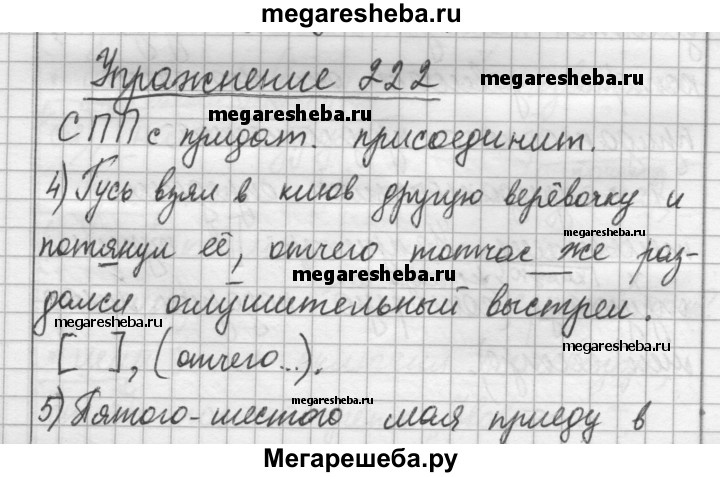 megaresheba.ru
Упражнение 222
megaresheba.ru
megaresheba.ru
СПП с придат. присоединит.
4) Гусь взял в клюв другую верёвочку и
megaresheba.ru
потянул её, отчего тотчас же раз-
megaresheba.ru
дался оглушительный выстрел.
megaresheba.ru
megaresheba.ru
[ ], (отчего...).
5) Пятого-шестого мая приеду в
megaresheba.ru
Мегарешеба.ру